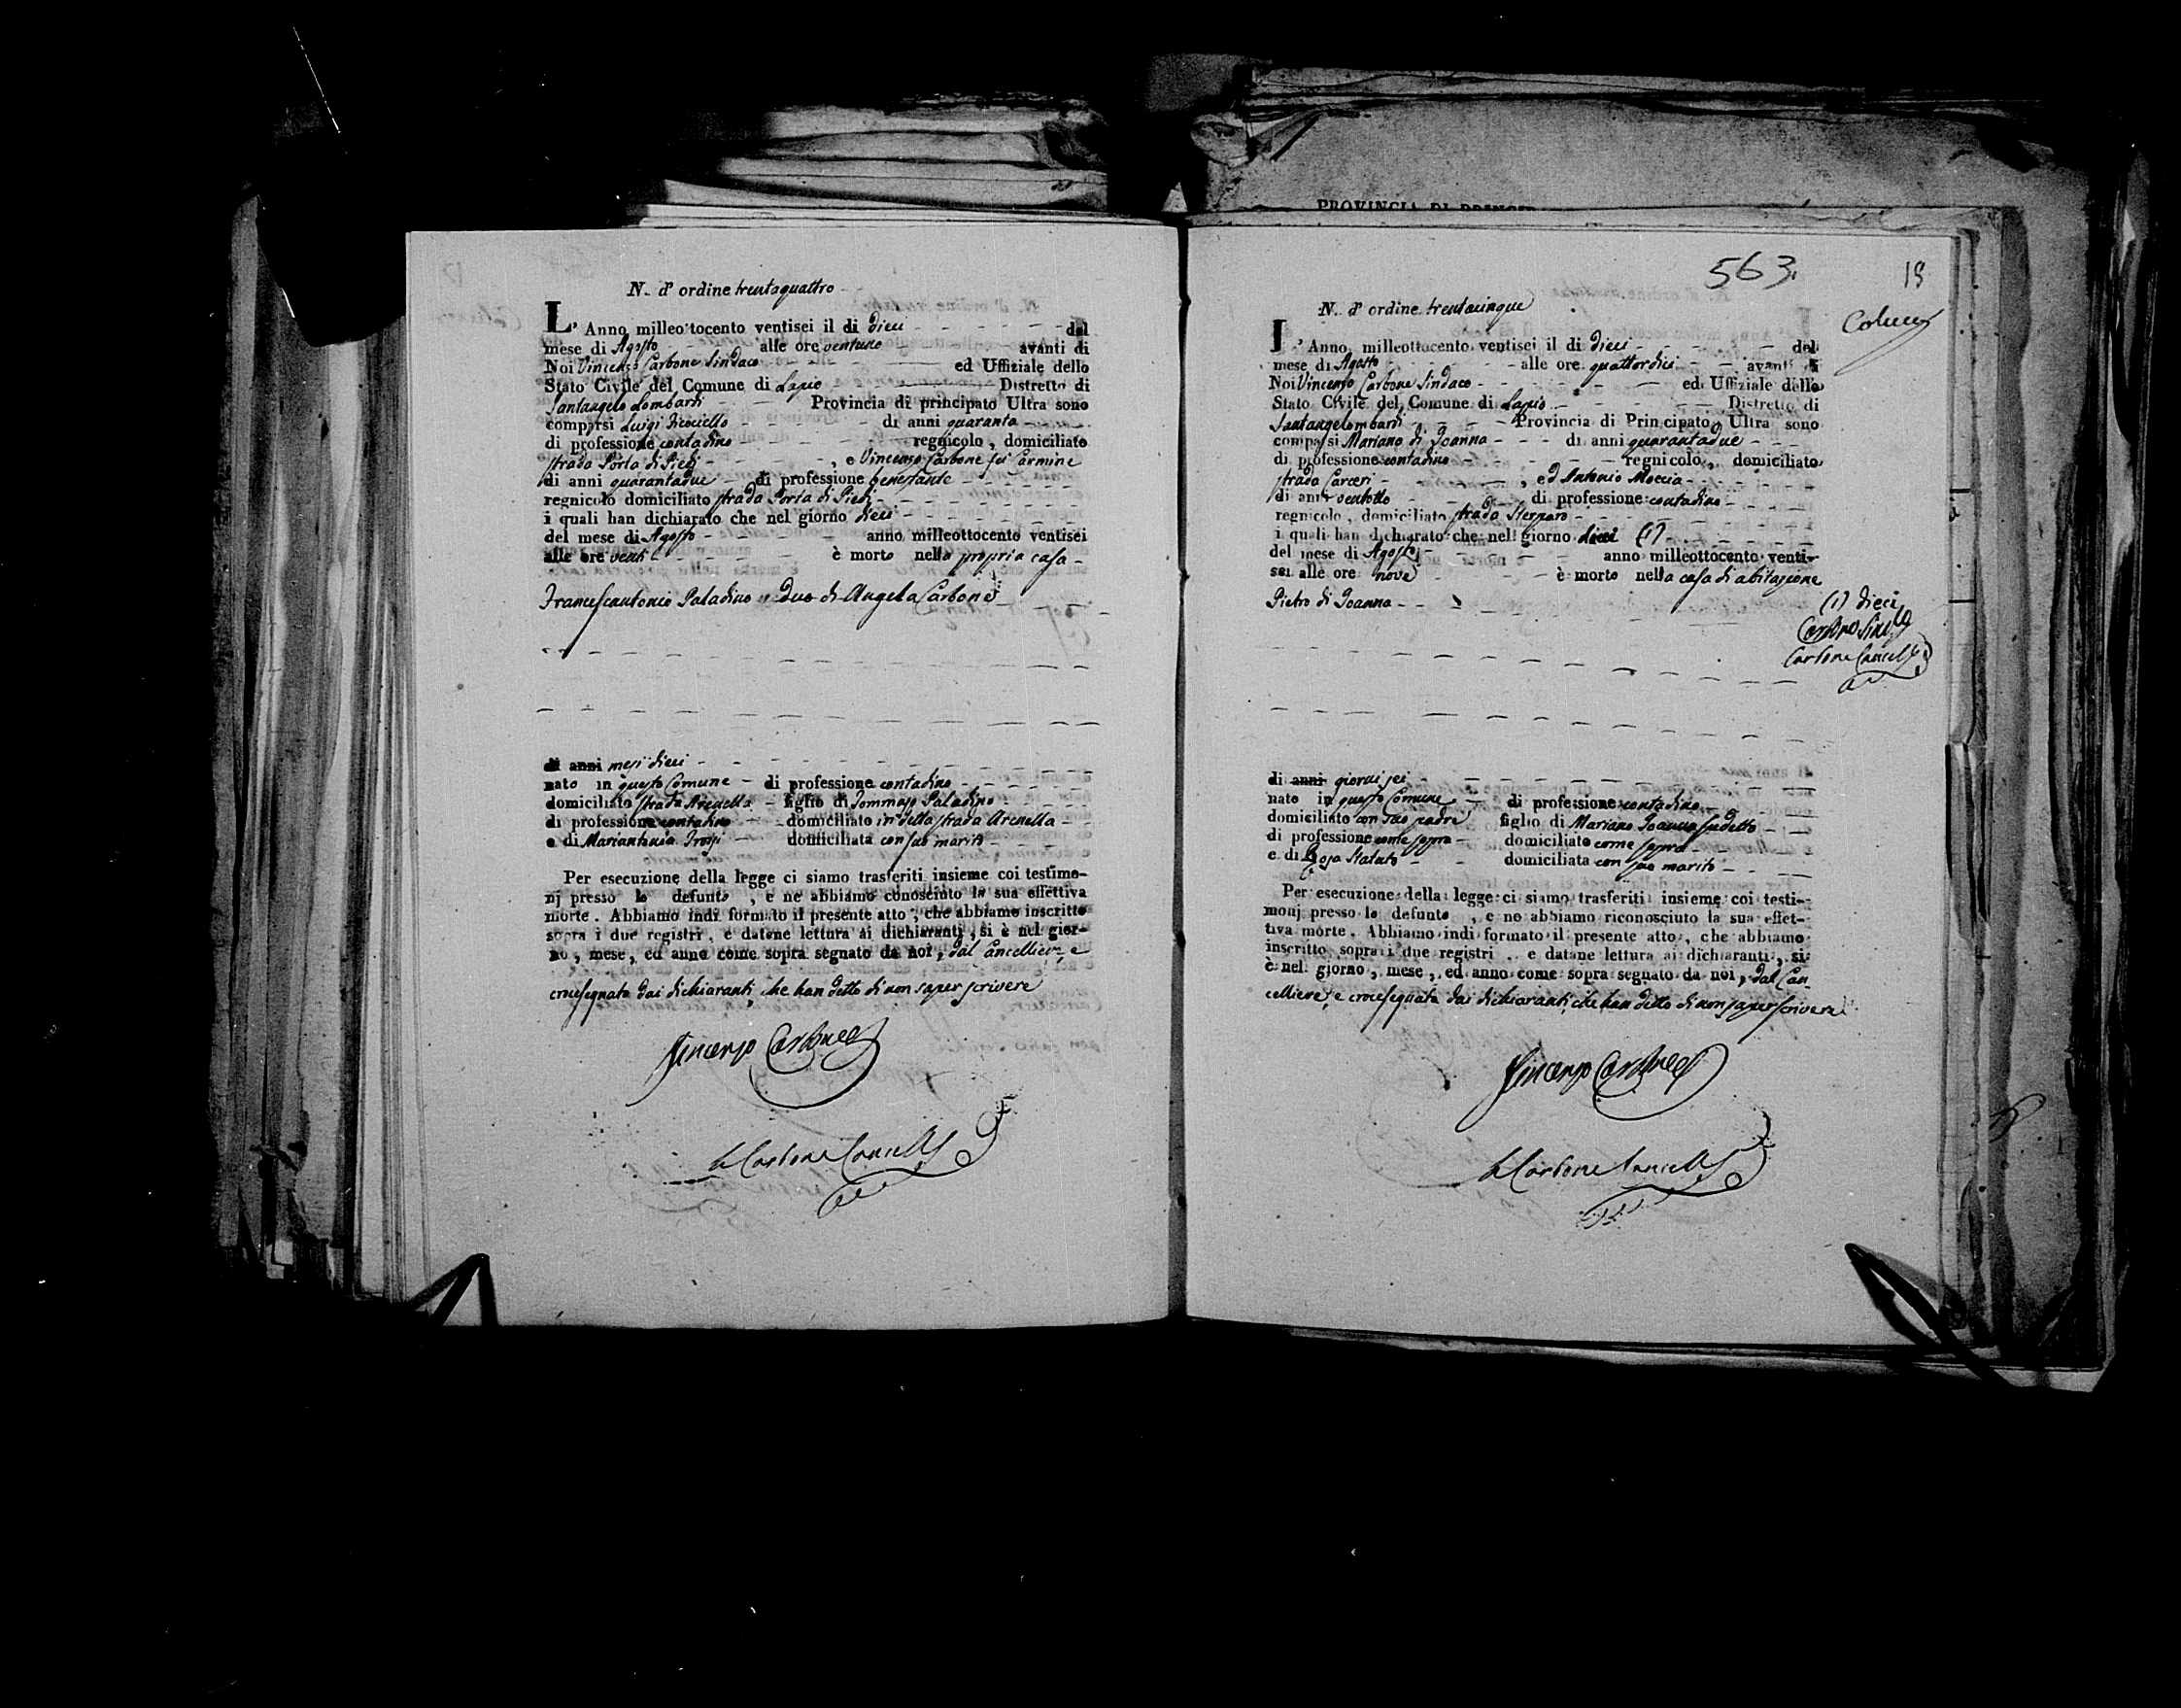 N. d' ordine trentaquattro
L' Anno milleottocento ventisei il di dieci del
mese di Agosto alle ore ventuno avanti di
Noi Vincenzo Carbone Sindaco ed Uffiziale dello
Stato Civile del Comune di Lapio Distretto di
Santangelo Lombardi Provincia di principato Ultra sono
comparsi Luigi di anni quaranta
di professione contadino regnicolo, domiciliato
strada Porta di Piedi, e Vincenzo Carbone fu Carmine
di anni quarantadue di professione benestante
regnicolo domiciliato strada Porta di Piedi
i quali han dichiarato che nel giorno dieci
del mese di Agosto anno milleottocento ventisei
alle ore venti è morto nella propria casa
Francescantonio Paladino di Angela Carbone
di anni mesi dieci
nato in questo Comune di professione contadino
domiciliato strada Arenella figlio di Tommaso Paladino
di professione contadino domiciliato in detta strada Arenella
e di Mariantonia domiciliata con suo marito
Per esecuzione della legge ci siamo trasferiti insieme coi testimo-
nj presso lo defunto, e ne abbiamo conosciuto la sua effettiva
morte. Abbiamo indi formato il presente atto, che abbiamo inscritto
sopra i due registri, e datane lettura ai dichiaranti, si è nel gior-
no, mese, ed anno come sopra segnato da noi, dal Cancelliere, e
crocesegnato dai dichiaranti che han detto di non saper scrivere
Vincenzo Carbone
Carbone Cancell
PROVINCIA DI PRINCIP
563.
18
N. d' ordine trentacinque
L' Anno milleottocento ventisei il di dieci del
mese di Agosto alle ore quattordici avanti di
Noi Vincenzo Carbone Sindaco ed Uffiziale dello
Stato Civile del Comune di Lapio Distretto di
Santangelombardi Provincia di Principato Ultra sono
comparsi Mariano di Joanna di anni quarantadue
di professione contadino regnicolo, domiciliato
strada Carceri, ed Antonio Moccia
di anni ventotto di professione contadino
regnicolo, domiciliato strada
i quali han dichiarato che nel giorno dieci (1)
del mese di Agosto anno milleottocento venti-
sei alle ore nove è morto nella casa di abitazione
Pietro di Joanna
(1) dieci
Carbone Sind
Carbone Cancell
di anni giorni sei
nato in questo Comune di professione contadino
domiciliato con suo padre figlio di Mariano Joanna sudetto
di professione come sopra domiciliato come sopra
e di Rosa Statuto domiciliata con suo marito
Per esecuzione della legge ci siamo trasferiti insieme coi testi-
monj presso lo defunto, e ne abbiamo riconosciuto la sua effet-
tiva morte. Abbiamo indi formato il presente atto, che abbiamo
inscritto sopra i due registri, e datane lettura ai dichiaranti, si
è nel giorno, mese, ed anno come sopra segnato da noi, dal Can-
celliere, e crocesegnato dai dichiaranti che han detto di non saper scrivere
Vincenzo Carbone
Carbone Cancell